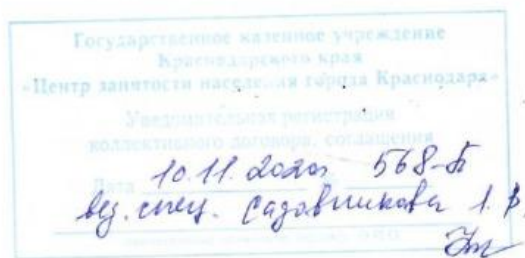 Государственное казенное учреждение
Краснодарского края
«Центр занятости населения города Краснодара»
Уведомительная регистрация
коллективного договора, соглашения
Дата 10.11.2020г 568-Б
вед. спец. Садовникова